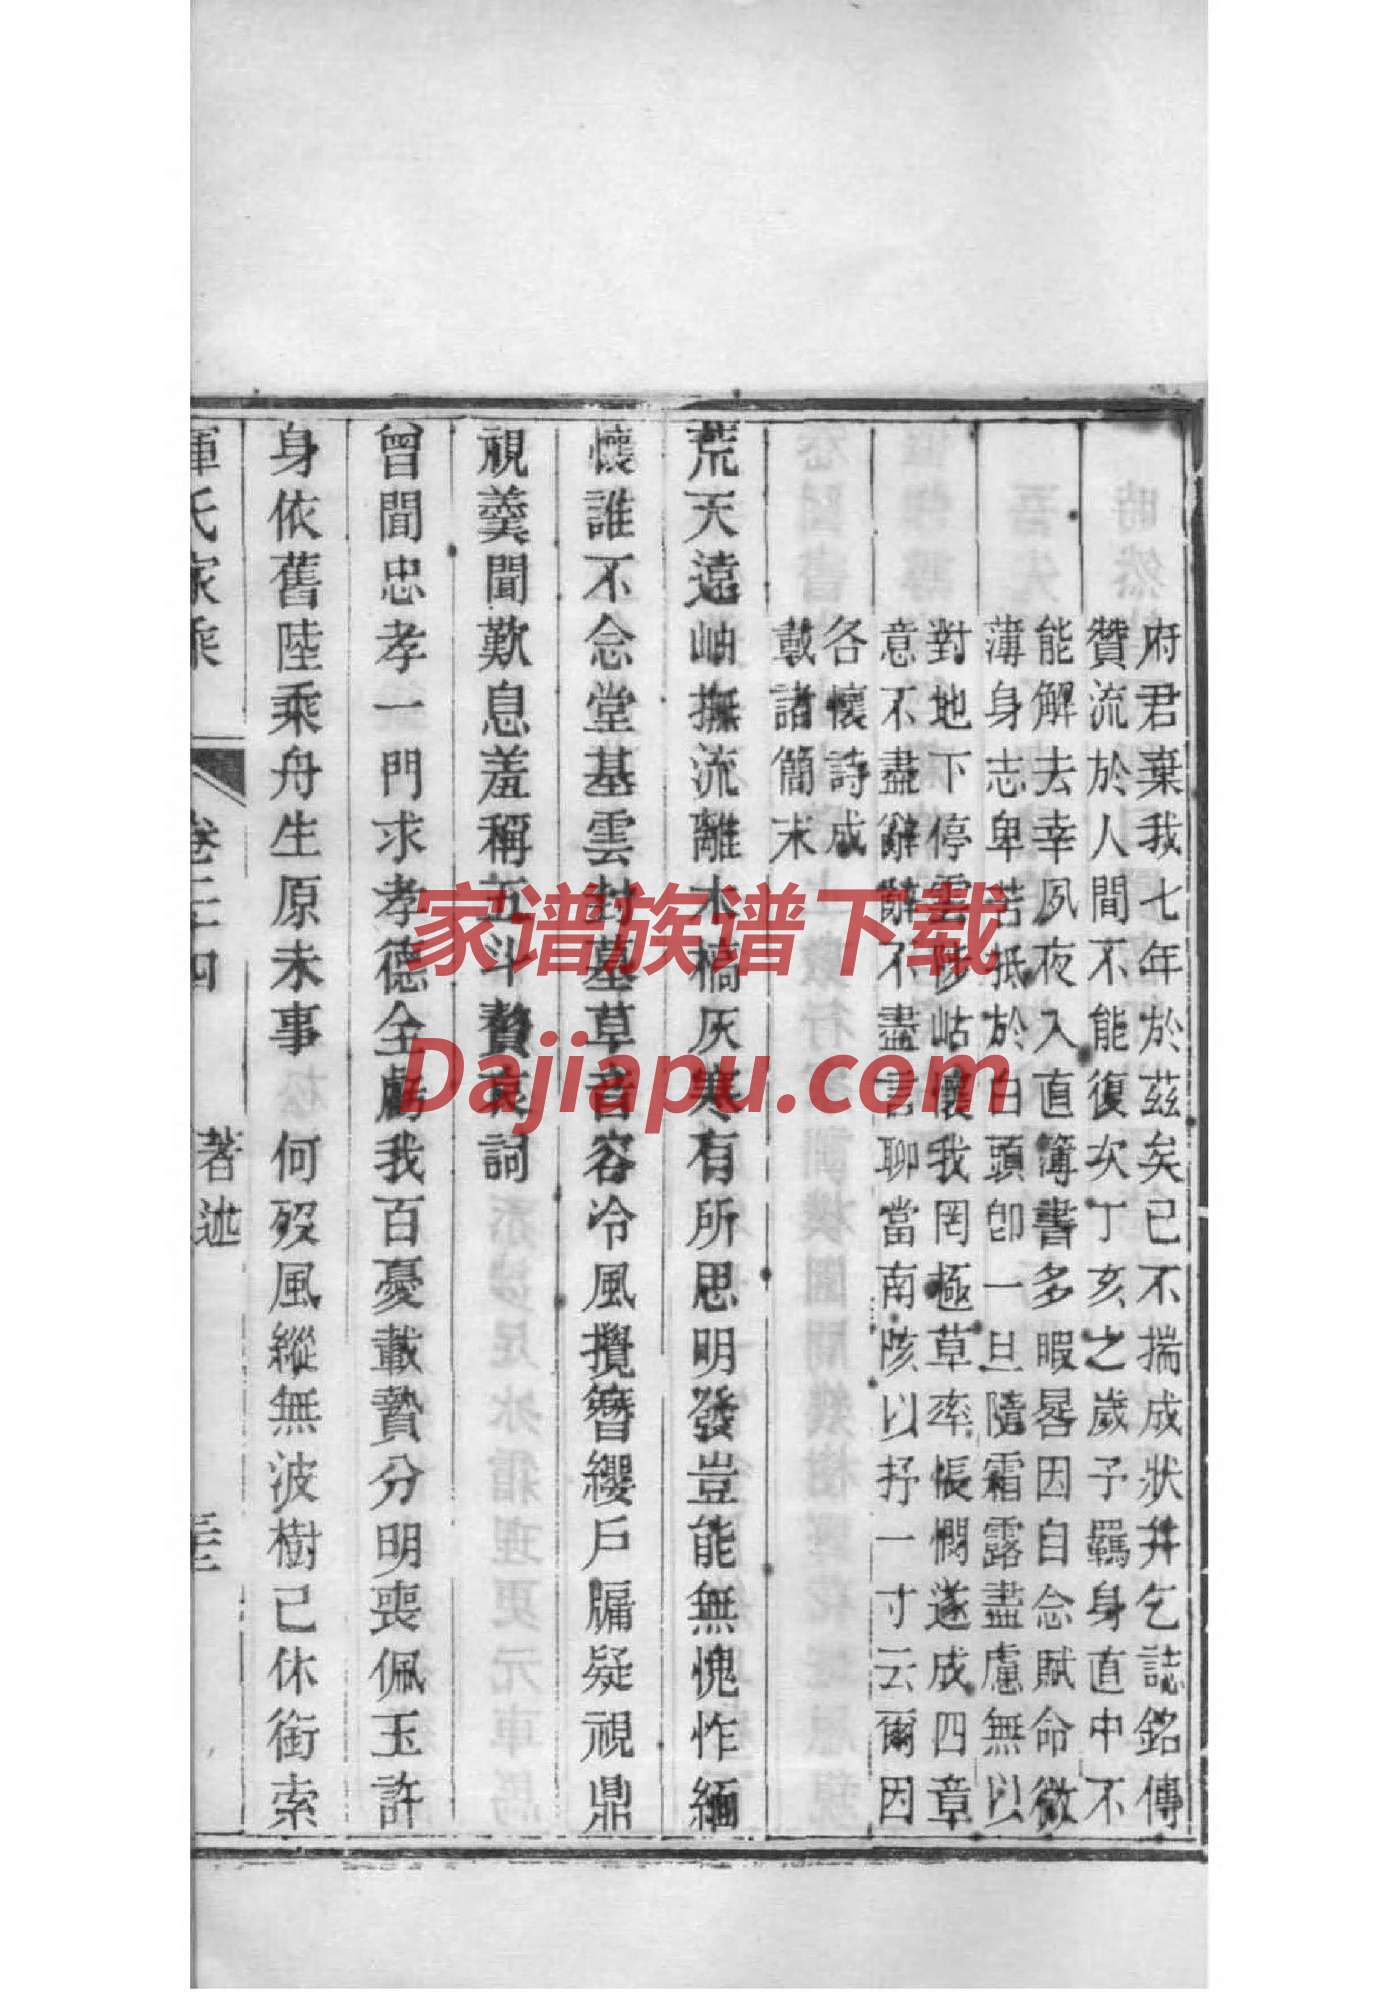 府君棄我七年於茲矣已不揣成狀并乞誌銘傳
贊流於人間不能復次丁亥之歲予羈身直中不
能解去幸夙夜入直簿書多暇晷因自念賦命微
薄身志卑苦抵於白頭卽一旦隨霜露盡慮無以
對地下停雲陟岵懷我罔極草率悵惘遂成四章
意不盡辭辭不盡言聊當南陔以抒一寸云爾因
各懷詩成
載諸簡末
荒天遠岫撫流離木槁灰寒有所思明發豈能無愧怍緬
懷誰不念堂基雲封墓草音容冷風攪簪纓戶牖疑視鼎
視羹聞歎息羞稱五斗贅哀詞
曾聞忠孝一門求孝德全虧我百憂載贄分明喪佩玉許
身依舊陸乘舟生原未事何歿風縱無波樹已休銜索
惲氏家乘
卷三四
著述
家谱族谱下载
Dajiapu.com